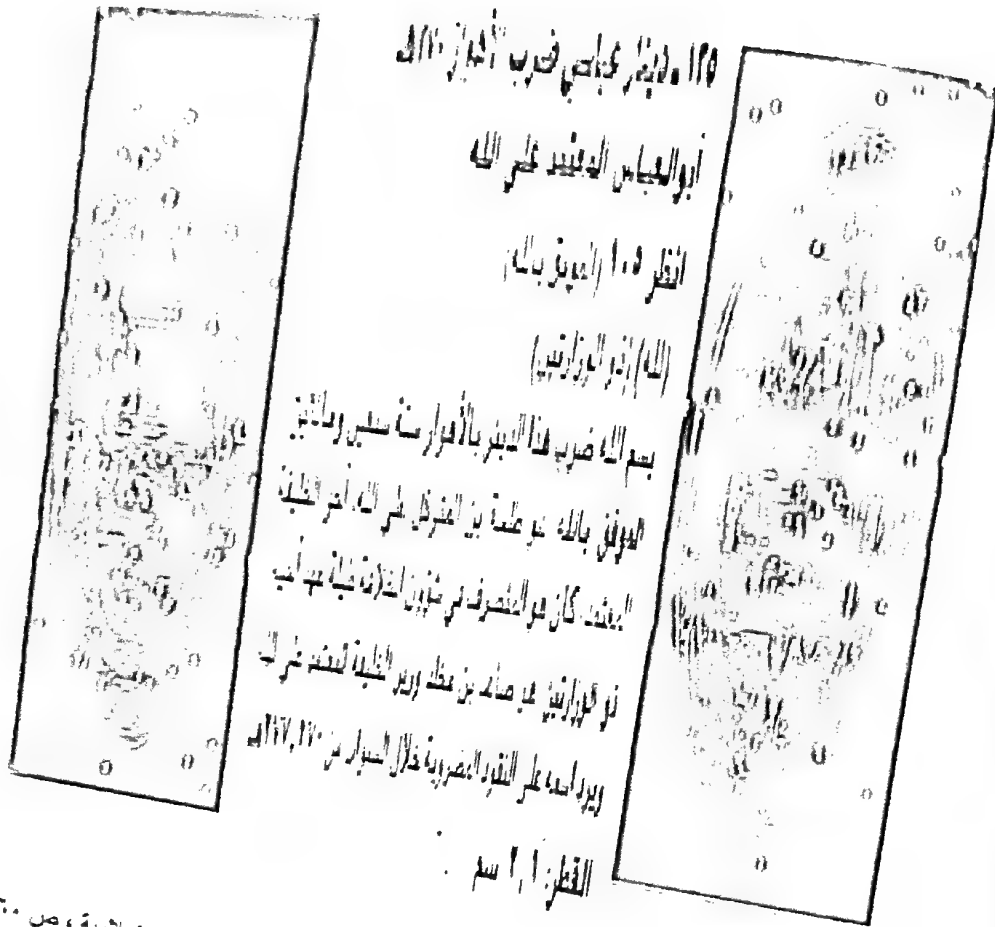 ١٢٥ - دينار عباسي ضرب الأهواز ٢٧٠هـ
أبو العباس المعتمد على الله
(الموفق بالله)
(لله) (ذو الوزارتين)
بسم الله ضرب هذا الدينر بالأهواز سنة سبعين ومائتين
الموفق بالله هو طلحة بن المتوكل على الله، أخو الخليفة
المعتمد، كان هو المتصرف في شؤون الخلافة طيلة عهد أخيه
ذو الوزارتين هو صاعد بن مخلد وزير الخليفة المعتمد على الله
ويرد اسمه على النقود المضروبة خلال السنوات من
القطر: ٢,١ سم
ص